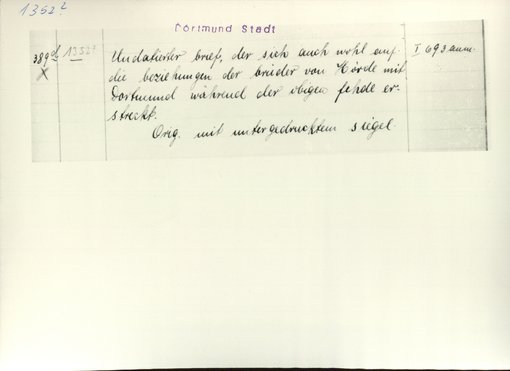 1352?
Dortmund Stadt
389d 1352? Undatierter brief, der sich auch wohl auf I 693 anm.
X die beziehungen der brüder von Hörde mit
Dortmund während der obigen fehde er-
streckt.
Orig. mit untergedrucktem siegel.